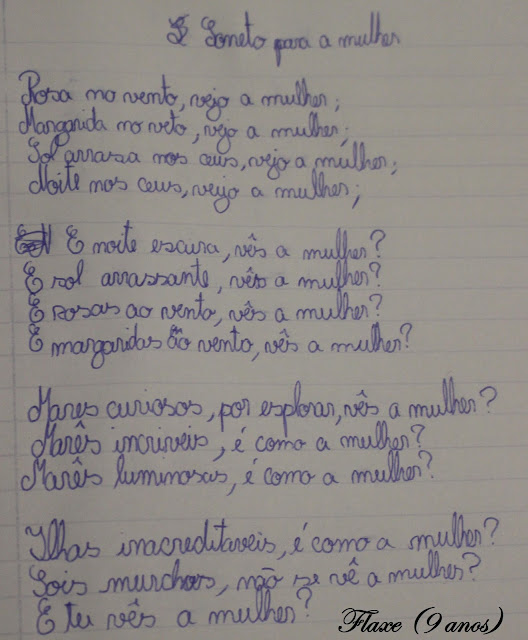 Soneto para a mulher
Rosa no vento, vejo a mulher;
Margarida no veto, vejo a mulher;
Sol arrasa nos céus, vejo a mulher;
Noite nos ceus, vejo a mulher;
E noite escura, vês a mulher?
E sol arrassante, vês a mulher?
E rosas ao vento, vês a mulher?
E margaridas ao vento, vês a mulher?
Mares curiosos, por esplorar, vês a mulher?
Marês incriveis, é como a mulher?
Marês luminosas, é como a mulher?
Ilhas inacreditaveis, é como a mulher?
Sois murchos, não se vê a mulher?
E tu vês a mulher?
Flaxe (9 anos)